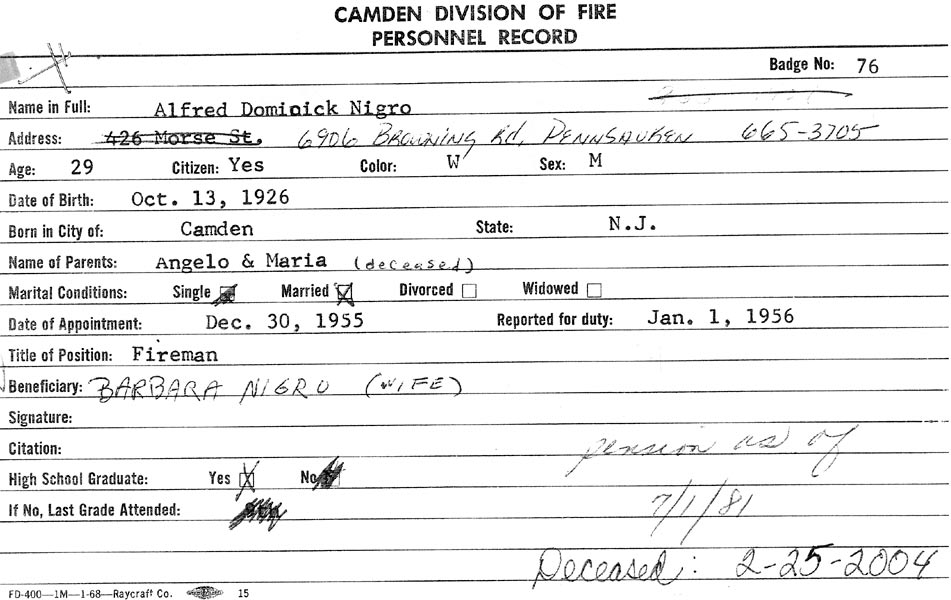 CAMDEN DIVISION OF FIRE
PERSONNEL RECORD
Badge No: 76
Name in Full: Alfred Dominick Nigro
Address: 426 Morse St. 6906 BROWNING Rd, PENNSAUKEN 665-3705
Age: 29 Citizen: Yes Color: W Sex: M
Date of Birth: Oct. 13, 1926
Born in City of: Camden State: N.J.
Name of Parents: Angelo & Maria (deceased)
Marital Conditions: Single Married Divorced Widowed
Date of Appointment: Dec. 30, 1955 Reported for duty: Jan. 1, 1956
Title of Position: Fireman
Beneficiary: BARBARA NIGRO (WIFE)
Signature:
Citation: pension as of
High School Graduate: Yes No
If No, Last Grade Attended: 7/1/81
Deceased: 2-25-2004
FD-400—1M—1-68—Raycraft Co. 15